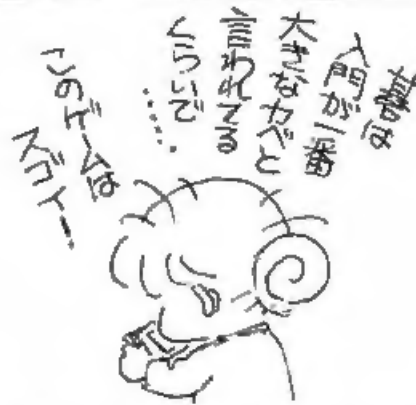 碁は
入門が一番
大きなカベと
言われてる
くらいで
……
このゲームは
スゴイ!